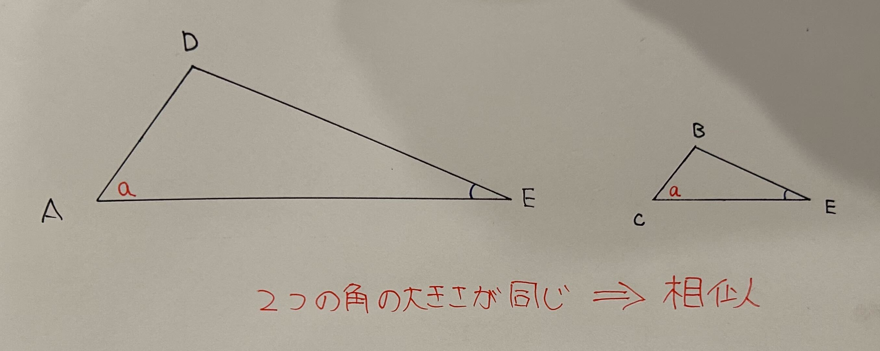 D
B
a
a
A
E
C
E
2つの角の大きさが同じ ⇒ 相似